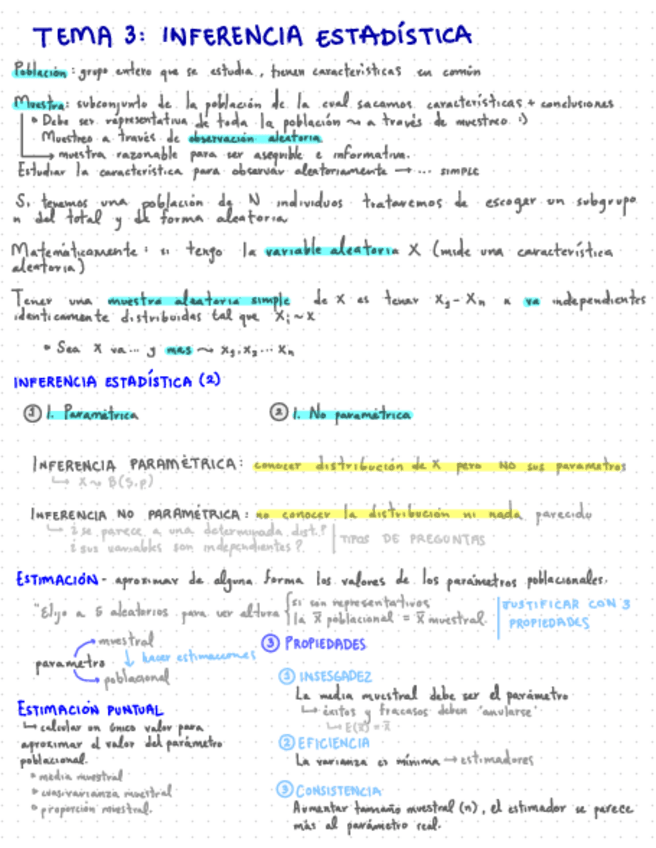 TEMA 3: INFERENCIA ESTADÍSTICA
Población: grupo entero que se estudia, tienen características en común
Muestra: subconjunto de la población de la cual sacamos características + conclusiones
• Debe ser representativa de toda la población ~ a través de muestreo :)
Muestreo a través de observación aleatoria
→ muestra razonable para ser asequible e informativa.
Estudiar la característica para observar aleatoriamente → ... simple
Si tenemos una población de N individuos trataremos de escoger un subgrupo
n del total y de forma aleatoria
Matemáticamente: si tengo la variable aleatoria X (mide una característica
aleatoria)
Tener una muestra aleatoria simple de X es tener X1 - Xn n va independientes
identicamente distribuidas tal que Xi ~ X
• Sea X va... y mas ~ X1, X2 ... Xn
INFERENCIA ESTADÍSTICA (2)
① I. Paramétrica ② I. No paramétrica
INFERENCIA PARAMÉTRICA: conocer distribución de X pero NO sus parametros
↳ X ~ B(5,p)
INFERENCIA NO PARAMÉTRICA: no conocer la distribución ni nada parecido
↳ ¿se parece a una determinada dist.?
¿sus variables son independientes? | TIPOS DE PREGUNTAS
ESTIMACIÓN - aproximar de alguna forma los valores de los parámetros poblacionales.
"Elijo a 5 aleatorios para ver altura { si son representativos
la x̄ poblacional = x̄ muestral. | JUSTIFICAR CON 3
PROPIEDADES
parametro → muestral
↓ hacer estimaciones
→ poblacional
ESTIMACIÓN PUNTUAL
↳ calcular un único valor para
aproximar el valor del parámetro
poblacional.
• media muestral
• cuasivarianza muestral
• proporción muestral.
③ PROPIEDADES
① INSESGADEZ
La media muestral debe ser el parámetro
↳ éxitos y fracasos deben "anularse"
↳ E(x̄) = x̄
② EFICIENCIA
La varianza es mínima → estimadores
③ CONSISTENCIA
Aumentar tamaño muestral (n), el estimador se parece
más al parámetro real.